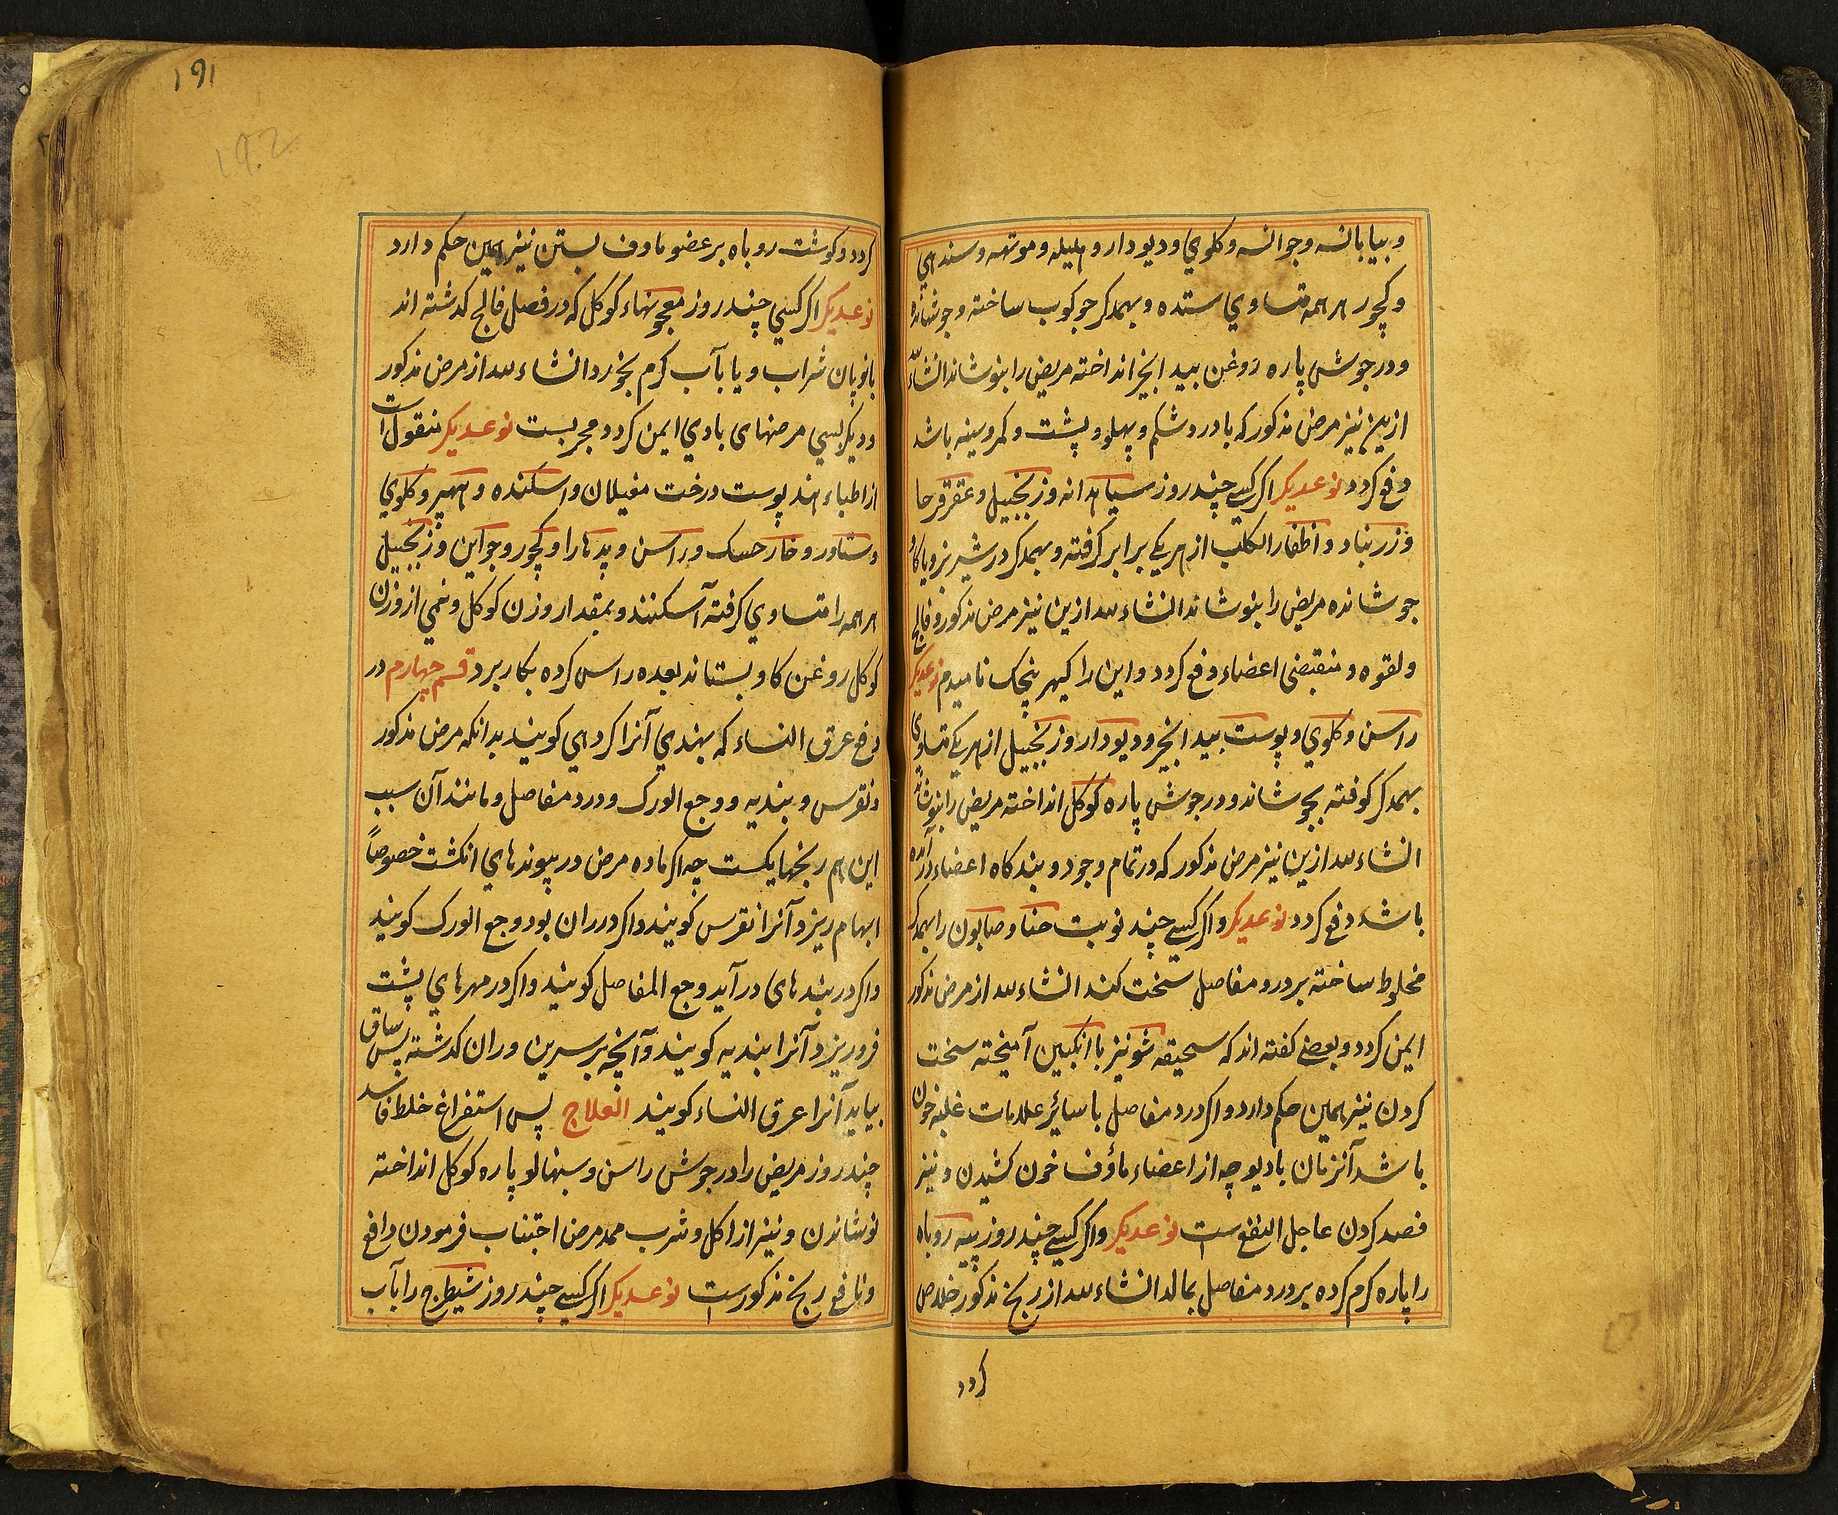 و بیابانسه و جوانسه و کلوي و دیودار و هلیله و موتهه و سندهي
و کچور هر همه متساوي ستده و بهمدکر جوکوب ساخته و جوشانده
و در جوش پاره روغن بید انجیر انداخته مریض را بنوشاند انشاءالله
ازین نیز مرض مذکور که با درد شکم و پهلو و پشت و کمر و سینه باشد
دفع کردد نوعدیکر اکر کسي چند روز سیاهدانه و زنجبیل و عقرقرحا
و زرنباد و اظفارالکلب از هر یکے برابر کرفته و بهمدکر در شیر بز و یا کاو
جوشانده مریض را بنوشاند انشاءالله ازین نیز مرض مذکور و فالج
و لقوه و منقبضی اعضاء دفع کردد و این را کهیر پنچک نامیدم نوعدیکر
راسن و کلوي و پوست بید انجیر و دیودار و زنجبیل از هر یکے متساوي
بهمدکر کوفته بجوشاند و در جوش پاره کوکل انداخته مریض را بنوشاند
انشاءالله ازین نیز مرض مذکور که در تمام وجود و بندکاه اعضاء درآمده
باشد دفع کردد نوعدیکر و اکر کسے چند نوبت حنا و صابون را بهمدکر
مخلوط ساخته بر درد مفاصل سخت کند انشاءالله از مرض مذکور
ایمن کردد و بعضے کفته اند که سحیقه شونیز با انکبین آمیخته سخت
کردن نیز همین حکم دارد و اکر درد مفاصل با سائر علامات غلبه خون
باشد آنزمان با دیوچه از اعضاء ماؤف خون کشیدن و نیز
فصد کردن عاجل النفع است نوعدیکر و اکر کسے چند روز پیه روباه
را پاره کرم کرده بر درد مفاصل بمالد انشاءالله از رنج مذکور خلاص
کردد
۱۹۱
192
کردد و کوشت روباه بر عضو ماوف بستن نیز همین حکم دارد
نوعدیکر اکر کسي چند روز معجونهاء کوکل که در فصل فالج کذشته اند
با نوپان شراب و یا بآب کرم بخورد انشاءالله از مرض مذکور
و دیکر بسي مرضهاي بادي ایمن کردد مجربست نوعدیکر منقول است
از اطباء هند پوست درخت مغیلان و اسکنده و ههبیر و کلوي
و ستاور و خارحسک و راسن و بدهارا و کچور و جواین و زنجبیل
هر همه را متساوي کرفته آسکنند و بمقدار وزن کوکل و نیمي از وزن
کوکل روغن کاو بستاند بعده راس کرده بکار برد قسم چهارم در
دفع عرق النساء که بهندي آنرا کردهي کویند بدانکه مرض مذکور
و نقرس و بندیه و وجع الورک و درد مفاصل و مانند آن سبب
این هم رنجها یکست چه اکر ماده مرض در پیوندهاي انکشت خصوصاً
ابهام ریزد آنرا نقرس کویند و اکر در ران بود وجع الورک کویند
و اکر در بندهاي درآید وجع المفاصل کویند و اکر در مهرهاي پشت
فرو ریزد آنرا بندیه کویند و آنچه بر سرین و ران کذشته پس ساق
بیاید آنرا عرق النساء کویند العلاج پس استفراغ خلط فاسد
چند روز مریض را در جوش راسن و سنبهالو پاره کوکل انداخته
نوشاندن و نیز از اکل و شرب ممد مرض اجتناب فرمودن دافع
و نافع رنج مذکور است نوعدیکر اکر کسے چند روز شیطرج را بآب